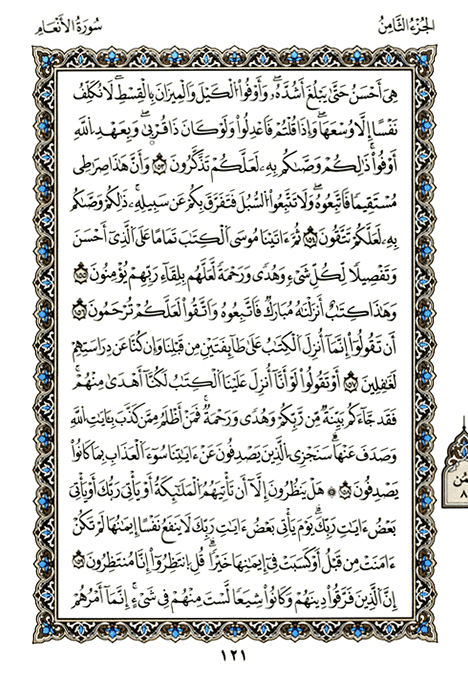 الجُزْءُ الثَّامِنُ
سُورَةُ الأَنْعَامِ
هِيَ أَحْسَنُ حَتَّىٰ يَبْلُغَ أَشُدَّهُۥۖ وَأَوْفُواْ الْكَيْلَ وَالْمِيزَانَ بِالْقِسْطِۖ لَا نُكَلِّفُ
نَفْسًا إِلَّا وُسْعَهَاۖ وَإِذَا قُلْتُمْ فَاعْدِلُواْ وَلَوْ كَانَ ذَا قُرْبَىٰۖ وَبِعَهْدِ اللَّهِ
أَوْفُواْۚ ذَٰلِكُمْ وَصَّىٰكُم بِهِۦ لَعَلَّكُمْ تَذَّكَّرُونَ وَأَنَّ هَٰذَا صِرَٰطِي
مُسْتَقِيمًا فَاتَّبِعُوهُۖ وَلَا تَتَّبِعُواْ السُّبُلَ فَتَفَرَّقَ بِكُمْ عَن سَبِيلِهِۦۚ ذَٰلِكُمْ وَصَّىٰكُم
بِهِۦ لَعَلَّكُمْ تَتَّقُونَ ثُمَّ ءَاتَيْنَا مُوسَى الْكِتَٰبَ تَمَامًا عَلَى الَّذِي أَحْسَنَ
وَتَفْصِيلًا لِّكُلِّ شَيْءٍ وَهُدًى وَرَحْمَةً لَّعَلَّهُم بِلِقَاءِ رَبِّهِمْ يُؤْمِنُونَ
وَهَٰذَا كِتَٰبٌ أَنزَلْنَٰهُ مُبَارَكٌ فَاتَّبِعُوهُ وَاتَّقُواْ لَعَلَّكُمْ تُرْحَمُونَ
أَن تَقُولُواْ إِنَّمَا أُنزِلَ الْكِتَٰبُ عَلَىٰ طَائِفَتَيْنِ مِن قَبْلِنَا وَإِن كُنَّا عَن دِرَاسَتِهِمْ
لَغَٰفِلِينَ أَوْ تَقُولُواْ لَوْ أَنَّا أُنزِلَ عَلَيْنَا الْكِتَٰبُ لَكُنَّا أَهْدَىٰ مِنْهُمْۚ
فَقَدْ جَاءَكُم بَيِّنَةٌ مِّن رَّبِّكُمْ وَهُدًى وَرَحْمَةٌۚ فَمَنْ أَظْلَمُ مِمَّن كَذَّبَ بِـَٔايَٰتِ اللَّهِ
وَصَدَفَ عَنْهَاۗ سَنَجْزِي الَّذِينَ يَصْدِفُونَ عَنْ ءَايَٰتِنَا سُوءَ الْعَذَابِ بِمَا كَانُواْ
يَصْدِفُونَ ۞ هَلْ يَنظُرُونَ إِلَّا أَن تَأْتِيَهُمُ الْمَلَٰئِكَةُ أَوْ يَأْتِيَ رَبُّكَ أَوْ يَأْتِيَ
بَعْضُ ءَايَٰتِ رَبِّكَۗ يَوْمَ يَأْتِي بَعْضُ ءَايَٰتِ رَبِّكَ لَا يَنفَعُ نَفْسًا إِيمَٰنُهَا لَمْ تَكُنْ
ءَامَنَتْ مِن قَبْلُ أَوْ كَسَبَتْ فِي إِيمَٰنِهَا خَيْرًاۗ قُلِ انتَظِرُواْ إِنَّا مُنتَظِرُونَ
إِنَّ الَّذِينَ فَرَّقُواْ دِينَهُمْ وَكَانُواْ شِيَعًا لَّسْتَ مِنْهُمْ فِي شَيْءٍۚ إِنَّمَا أَمْرُهُمْ
١٢١